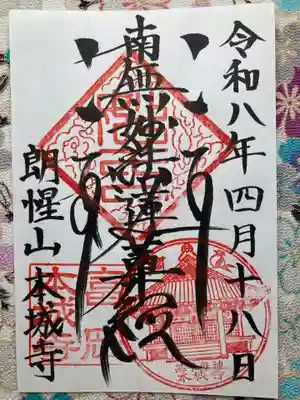 令和八年四月十八日
南無妙法蓮華経
朗惺山 本城寺